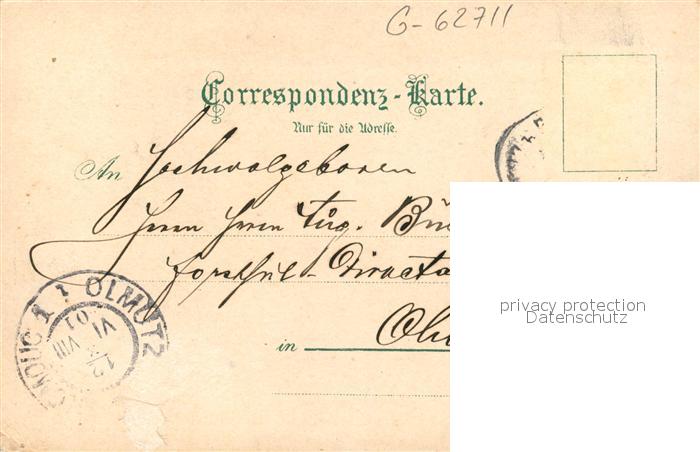 G-62711
Correspondenz-Karte.
Nur für die Adresse.
An Hochwolgeboren
Herrn Herrn Aug.
Forstschul-Director
in
OLMÜTZ 1
12/VIII
VI
01
privacy protection
Datenschutz